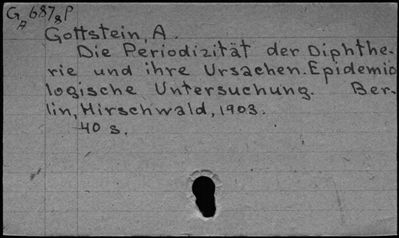 GA 6878P
Gottstein, A.
Die Periodizität der Diphthe-
rie und ihre Ursachen. Epidemio
logische Untersuchung. Ber-
lin, Hirschwald, 1903.
40 s.